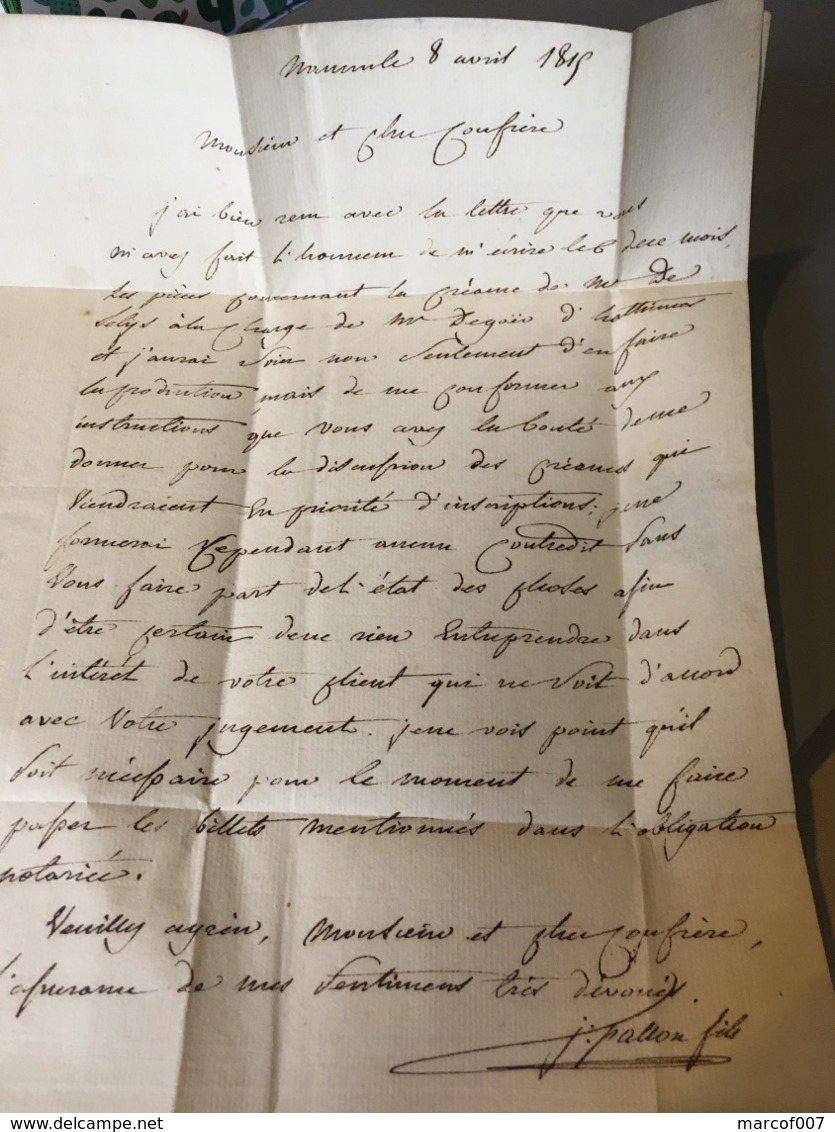 8 avril 1815
Monsieur et cher Confrère
j'ai bien recu avec la lettre que vous
m'avez fait l'honneur de m'écrire le 6 de ce mois,
les pièces concernant la créance de Mr De
Selys à la Charge de Mr d'
et j'aurai soin non seulement d'en faire
la production, mais de me conformer aux
instructions que vous avez la bonté de me
donner pour la discussion des créances qui
viendraient en priorité d'inscriptions; je ne
formerai cependant aucun contredit sans
vous faire part de l'état des choses afin
d'être certain de ne rien entreprendre dans
l'intérêt de votre client qui ne soit d'accord
avec votre jugement. je ne vois point qu'il
soit nécessaire pour le moment de me faire
passer les billets mentionnés dans l'obligation
notariée.
Veuillez agréer, Monsieur et cher Confrère,
l'assurance de mes sentimens très dévoués.
fils
marcof007